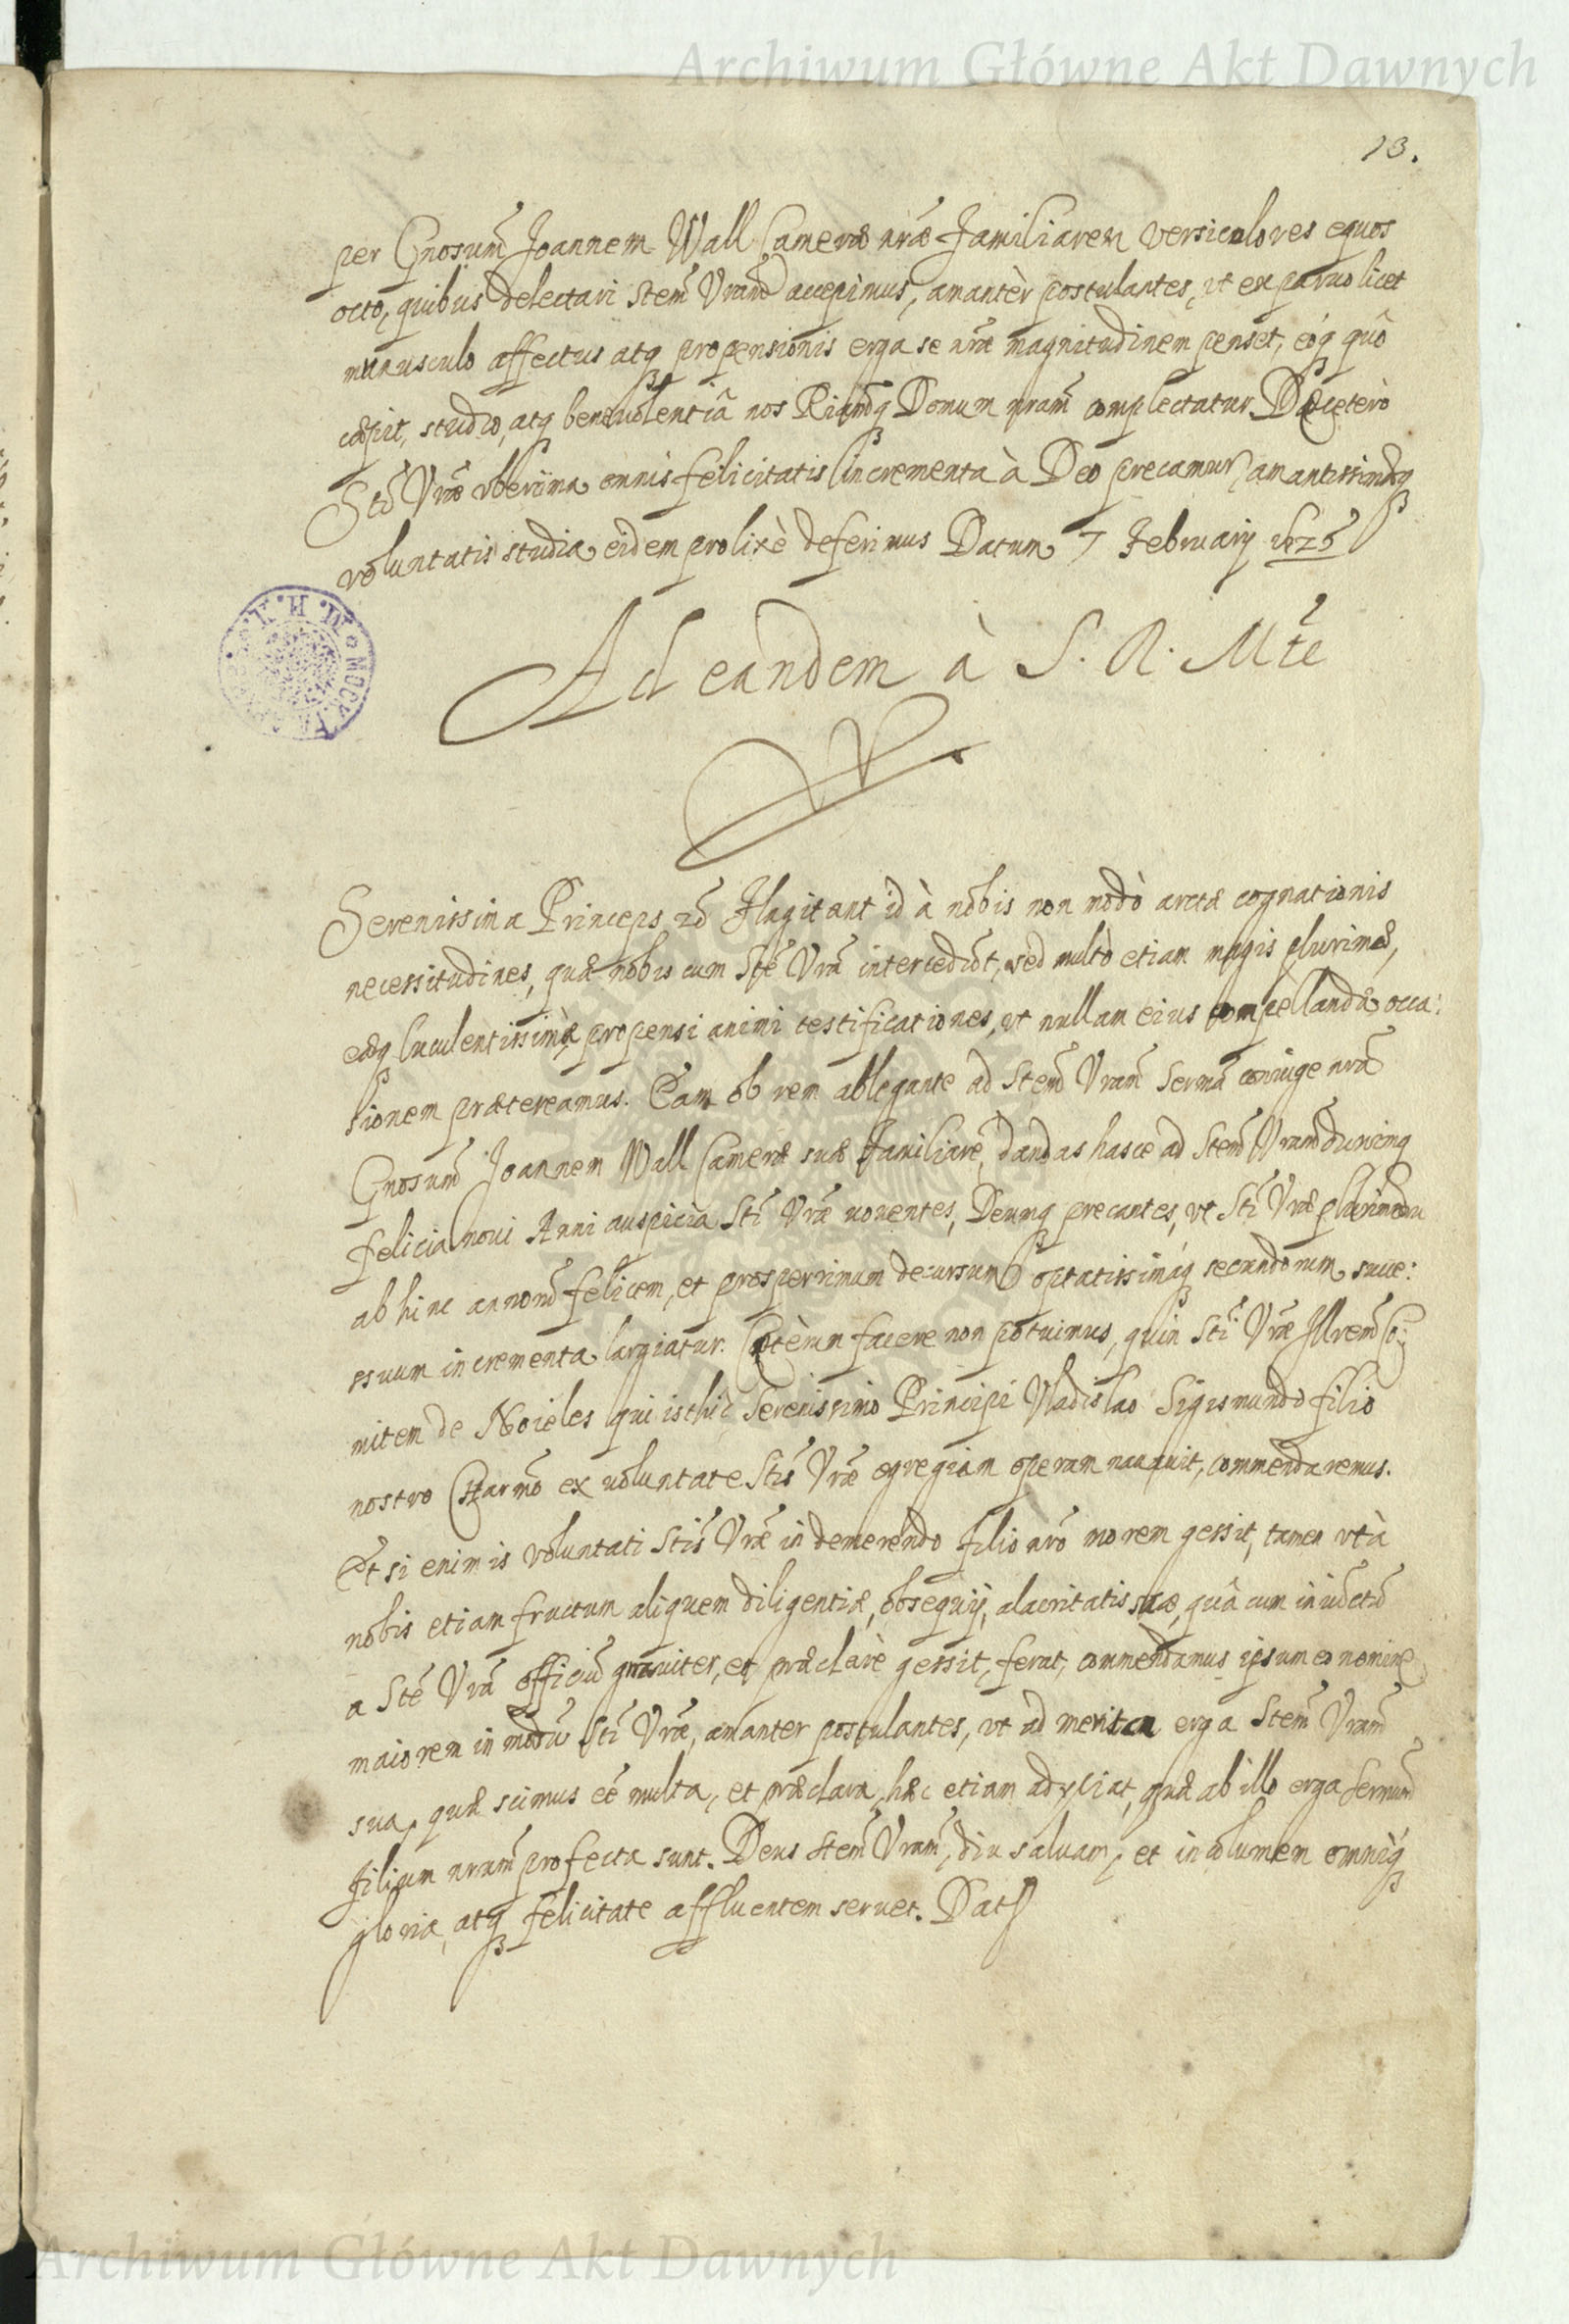 Archiwum Główne Akt Dawnych
13.
per Gnosum̃ Joannem Wall Cameræ nr̃æ Familiarem versicolores equos
octo, quibus delectari Stem̃ Vram̃ accepimus, amantèr postulantes, vt ex paruo licet
munusculo affectus atq propensionis erga se nr̃æ magnitudinem penset, eóq quô
cæpit, studio, atq beneuolentiâ nos Riamq̃ Domum nram̃ complectatur. De cetèro
Stĩ Vræ vberrima omnis felicitatis incrementa à Deo precamur, amantissimæq
voluntatis studia eidem prolixè deferimus Datum 7 February 1625
Ad eandem à S. R. Mte
Serenissima Princeps &c̃ Flagitant id à nobis non modò arctæ cognationis
necessitudines, quæ nobis cum Stẽ Vrã intercedũt, sed multò etiam magis plurimæ,
eæq luculentissimæ propensi animi testificationes, vt nullam eius compellandæ occa:
sionem prætereamus. Eam ob rem ablegante ad Stem̃ Vram̃ Serm̃a coniuge nrã
Gnosum̃ Joannem Wall Cameræ suæ Familiarẽ, dandas hasce ad Stem̃ Vram̃ duximq
felicia noui Anni auspicia Stĩ Vræ vouentes, Deumq precantes, vt Stĩ Vræ plurimorũ
ab hinc annorũ felicem, et prosperrimum decursum optatissimáq secundorum succe:
ssuum incrementa largiatur. Cætèrum facere non potuimus, quin Stĩ Vræ Illrem̃ Co:
mitem de Noieles qui isthic Serenissimo Principi Vladislao Sigismundo filio
nostro Charm̃o ex voluntate Stis̃ Vræ egregiam operam nauauit, commendaremus.
Et si enim is voluntati Stis̃ Vræ in demerendo filio nr̃o morem gessit, tamen vt à
nobis etiam fructum aliquem diligentiæ, obsequij, alacritatis suæ, quâ cum iniũctũ
a Stẽ Vrã officiũ gnauiter, et præclarè gessit, ferat, commendamus ipsum eo nomine
maiorem in modũ Stĩ Vræ, amanter postulantes, vt ad merita erga Stem̃ Vram̃
sua, quæ scimus eẽ multa, et præclara, hæc etiam adyciat, quæ ab illo erga Sermum̃
filium nrum̃ profecta sunt. Deus Stem̃ Vram̃, diu saluam, et incolumem omniq́
gloria, atq felicitate affluentem seruet. Dat
Archiwum Główne Akt Dawnych